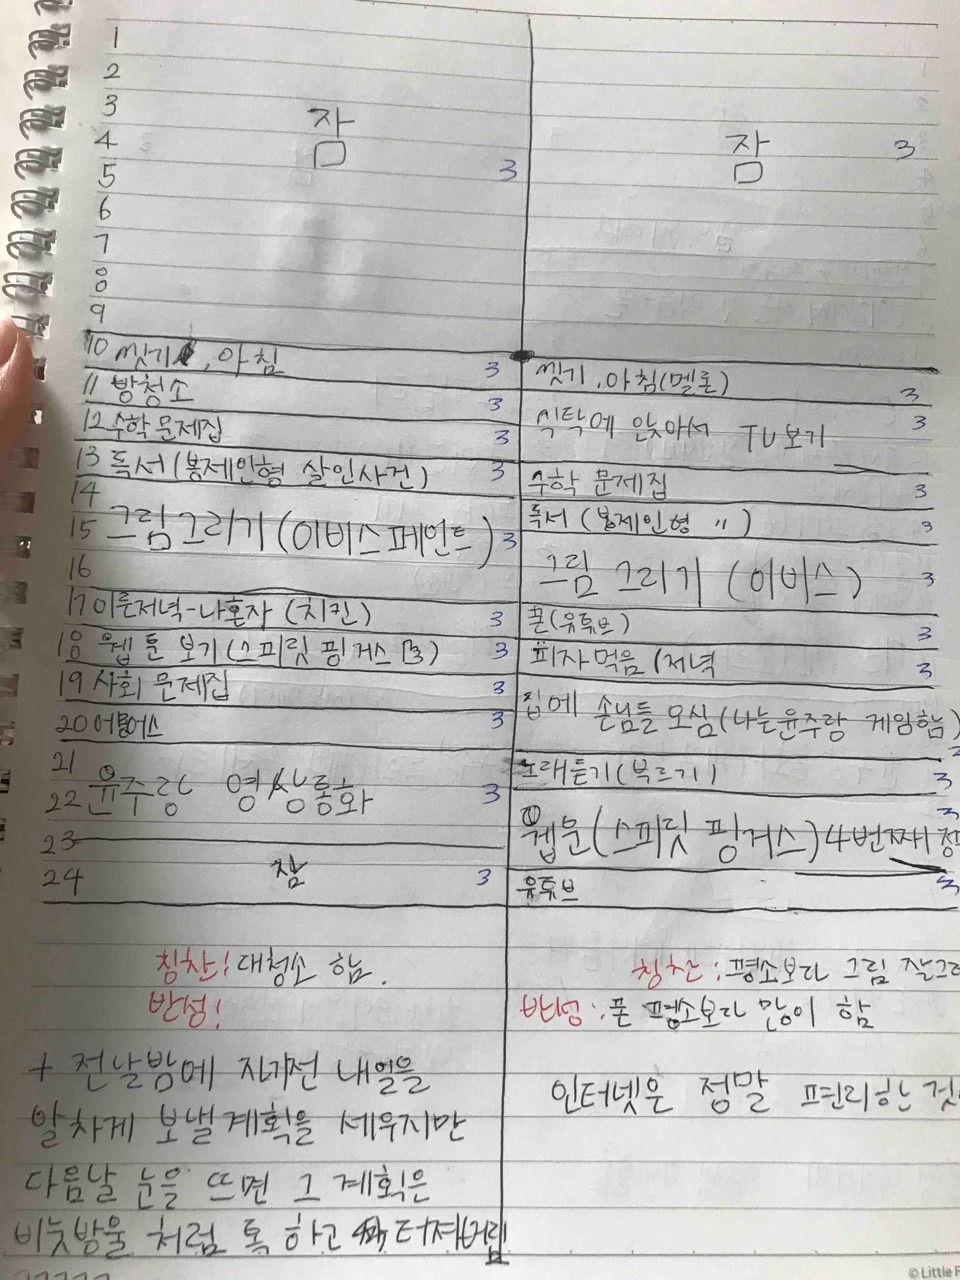 1
2
3
4
5
6
7
8
9
잠 3
10 씻기, 아침 3
11 방청소 3
12 수학 문제집 3
13 독서 (봉제인형 살인사건) 3
14
15 그림그리기 (이비스페인트) 3
16
17 이른저녁-나혼자 (치킨) 3
18 웹툰 보기 (스피릿 핑거스) 3
19 사회 문제집 3
20 어몽어스 3
21
22 윤주랑 영상통화 3
23
24 잠 3
칭찬! 대청소 함.
반성!
+ 전날밤에 자기전 내일을
알차게 보낼계획을 세우지만
다음날 눈을 뜨면 그 계획은
비눗방울 처럼 톡 하고 터져버림
잠 3
씻기, 아침(멜론) 3
식탁에 앉아서 TV보기 3
수학 문제집 3
독서 (봉제인형 〃) 3
그림 그리기 (이비스) 3
폰(유튜브) 3
피자먹음 (저녁 3
집에 손님들 오심(나는윤주랑 게임함)
노래듣기(부르기) 3
웹툰(스피릿 핑거스)4번째 정 3
유튜브 3
칭찬 : 평소보다 그림 잘그려
반성 : 폰 평소보다 많이 함
인터넷은 정말 편리한 것
© Little